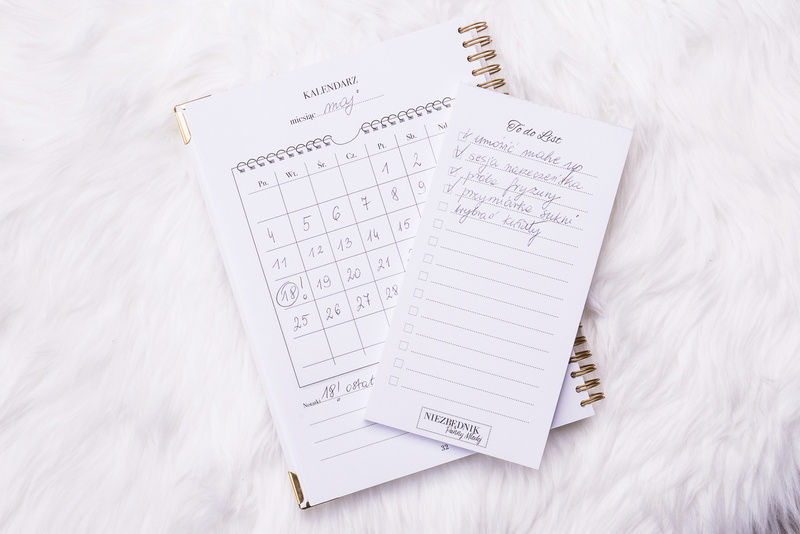 KALENDARZ
miesiąc maj
Pn. Wt. Śr. Cz. Pt. Sb. Nd
1 2
4 5 6 7 8 9
11 12 13 14 15
18! 19 20 21
25 26 27 28
Notatki 18! ostat
32
To do List
umówić make up
sesja narzeczeńska
próba fryzury
przymiarka sukni
wybrać kwiaty
NIEZBĘDNIK
Panny Młodej